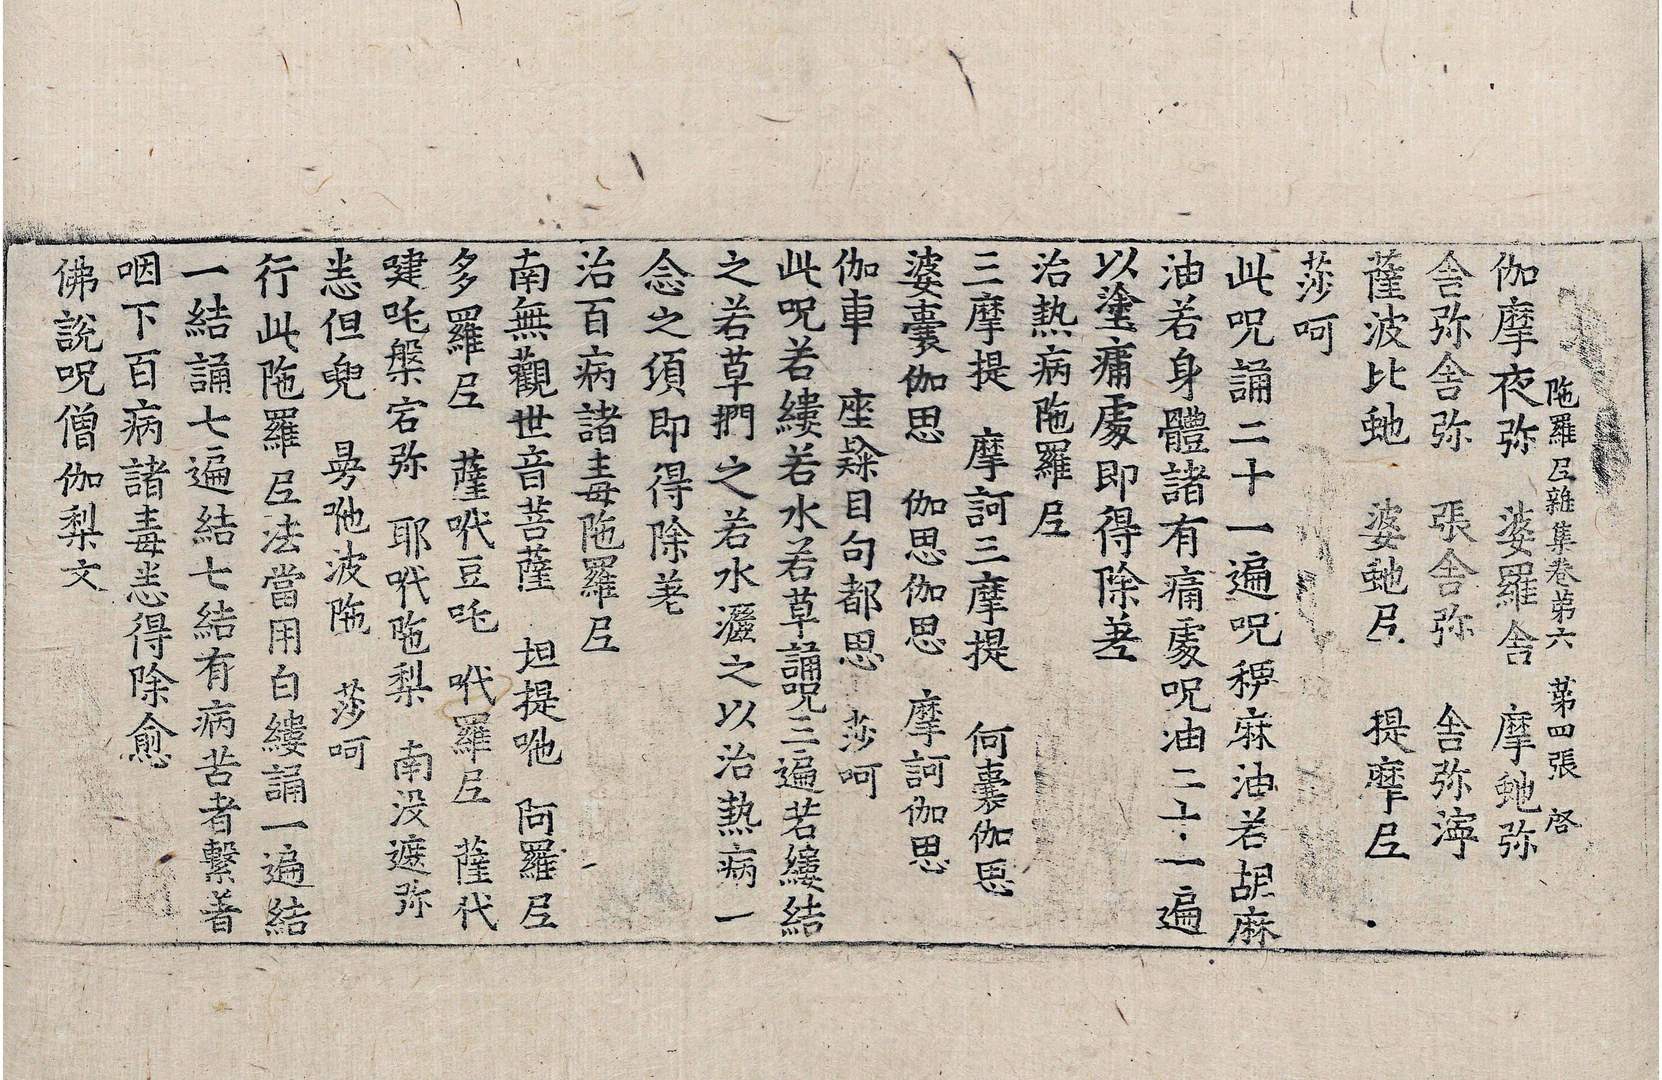 陁羅尼雜集卷第六　第四張　啓
伽摩夜弥　婆羅舍　摩虵弥
舍弥舍弥　張舍弥　舍弥濘
薩波比虵　婆虵尼　提摩尼
莎呵
此呪誦二十一遍呪稗麻油若胡麻
油若身體諸有痛處呪油二十一遍
以塗痛處即得除差
治熱病陁羅尼
三摩提　摩訶三摩提　何囊伽思
婆囊伽思　伽思伽思　摩訶伽思
伽車　座㝹目句都思　莎呵
此呪若縷若水若草誦呪三遍若縷結
之若草捫之若水灑之以治熱病一
念之須即得除差
治百病諸毒陁羅尼
南無觀世音菩薩　坦提咃　阿羅尼
多羅尼　薩哾豆吒　哾羅尼　薩代
㗸吒槃宕弥　耶哾陁梨　南没遮弥
恙但兜　曼咃波陁　莎呵
行此陁羅尼法當用白縷誦一遍結
一結誦七遍結七結有病苦者繫著
咽下百病諸毒恙得除愈
佛說呪僧伽梨文